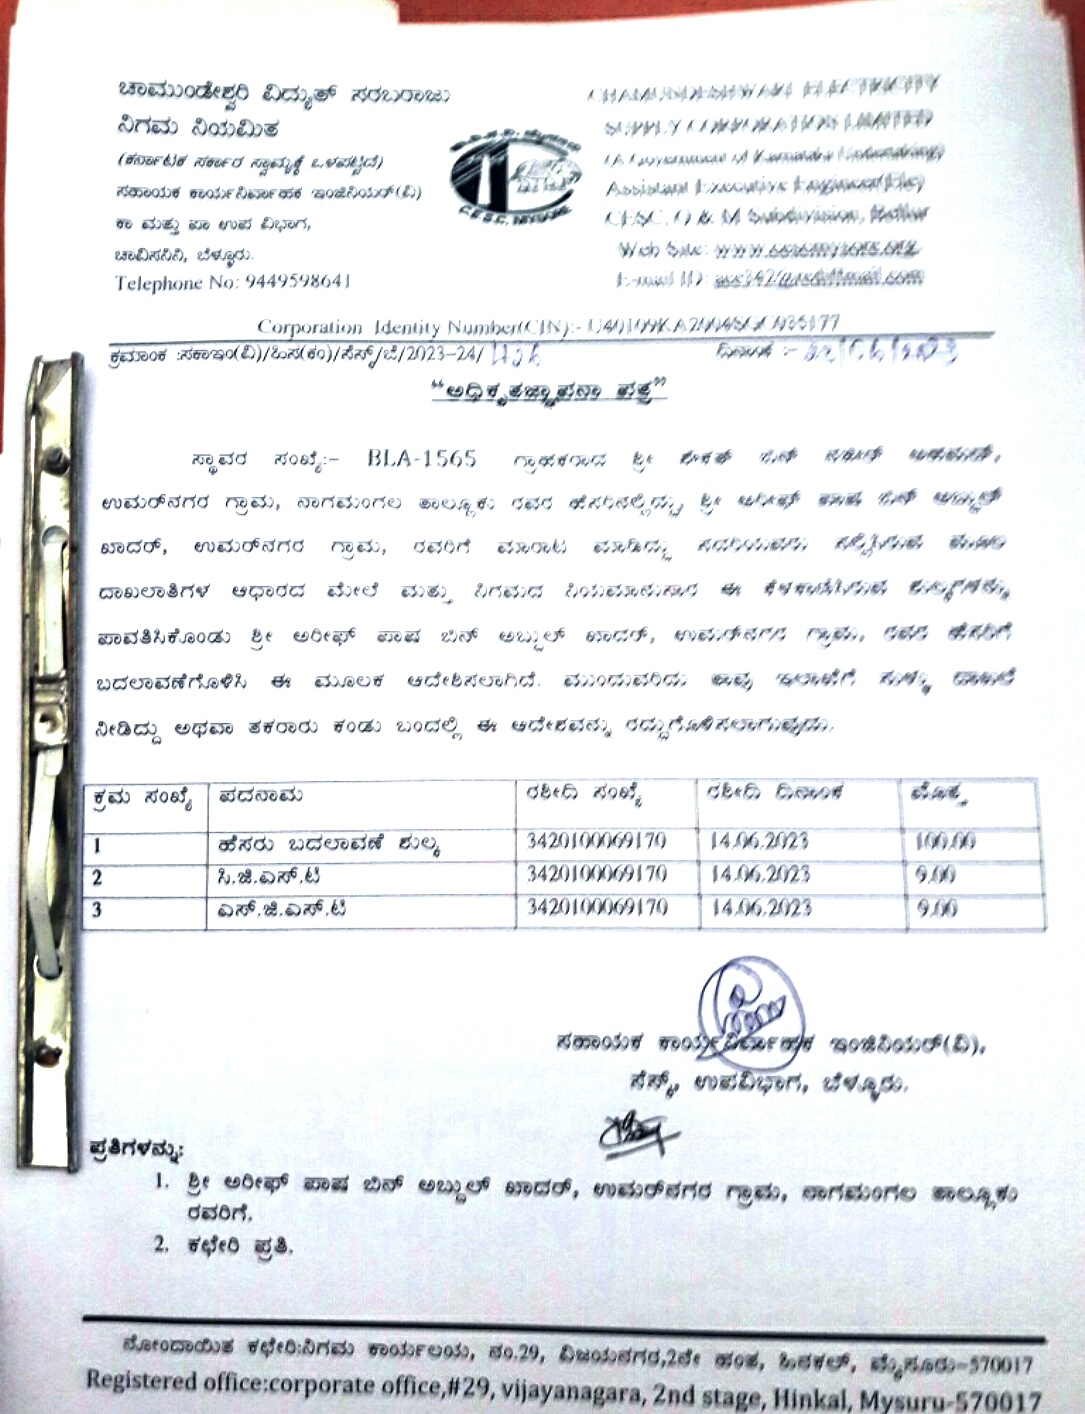 ಚಾಮುಂಡೇಶ್ವರಿ ವಿದ್ಯುತ್ ಸರಬರಾಜು
ನಿಗಮ ನಿಯಮಿತ
(ಕರ್ನಾಟಕ ಸರ್ಕಾರ ಸ್ವಾಮ್ಯಕ್ಕೆ ಒಳಪಟ್ಟಿದೆ)
ಸಹಾಯಕ ಕಾರ್ಯನಿರ್ವಾಹಕ ಇಂಜಿನಿಯರ್(ವಿ)
ಕಾ ಮತ್ತು ಪಾ ಉಪ ವಿಭಾಗ,
ಚಾವಿಸನಿನಿ, ಬೆಳ್ಳೂರು.
Telephone No: 9449598641
CHAMUNDESHWARI ELECTRICITY
SUPPLY CORPORATION LIMITED
(A Government of Karnataka Undertaking)
Assistant Executive Engineer(Ele)
CESC, O & M Subdivision, Bellur
Web Site:
E-mail ID:
Corporation Identity Number(CIN):- U40109KA2004SGC035177
ಕ್ರಮಾಂಕ :ಸಕಾಇಂ(ವಿ)/ಹಿಸ(ಕಂ)/ಸೆಸ್ಕ್/ಬೆ/2023-24/
ದಿನಾಂಕ :-
“ಅಧಿಕೃತಜ್ಞಾಪನಾ ಪತ್ರ”
ಸ್ಥಾವರ ಸಂಖ್ಯೆ:- BLA-1565 ಗ್ರಾಹಕರಾದ ಶ್ರೀ ಬಿನ್
ಉಮರ್‌ನಗರ ಗ್ರಾಮ, ನಾಗಮಂಗಲ ತಾಲ್ಲೂಕು ರವರ ಹೆಸರಿನಲ್ಲಿದ್ದು, ಶ್ರೀ ಅರೀಫ್ ಪಾಷ ಬಿನ್ ಅಬ್ದುಲ್
ಖಾದರ್, ಉಮರ್‌ನಗರ ಗ್ರಾಮ, ರವರಿಗೆ ಮಾರಾಟ ಮಾಡಿದ್ದು ಸದರಿಯವರು ಸಲ್ಲಿಸಿರುವ ಮೂಲ
ದಾಖಲಾತಿಗಳ ಆಧಾರದ ಮೇಲೆ ಮತ್ತು ನಿಗಮದ ನಿಯಮಾನುಸಾರ ಈ ಕೆಳಕಾಣಿಸಿರುವ ಶುಲ್ಕಗಳನ್ನು
ಪಾವತಿಸಿಕೊಂಡು ಶ್ರೀ ಅರೀಫ್ ಪಾಷ ಬಿನ್ ಅಬ್ದುಲ್ ಖಾದರ್, ಉಮರ್‌ನಗರ ಗ್ರಾಮ, ರವರ ಹೆಸರಿಗೆ
ಬದಲಾವಣೆಗೊಳಿಸಿ ಈ ಮೂಲಕ ಆದೇಶಿಸಲಾಗಿದೆ. ಮುಂದುವರಿದು ತಾವು ಇಲಾಖೆಗೆ ಸುಳ್ಳು ದಾಖಲೆ
ನೀಡಿದ್ದು ಅಥವಾ ತಕರಾರು ಕಂಡು ಬಂದಲ್ಲಿ ಈ ಆದೇಶವನ್ನು ರದ್ದುಗೊಳಿಸಲಾಗುವುದು.
ಕ್ರಮ ಸಂಖ್ಯೆ ಪದನಾಮ ರಶೀದಿ ಸಂಖ್ಯೆ ರಶೀದಿ ದಿನಾಂಕ ಮೊತ್ತ
1 ಹೆಸರು ಬದಲಾವಣೆ ಶುಲ್ಕ 3420100069170 14.06.2023 100.00
2 ಸಿ.ಜಿ.ಎಸ್.ಟಿ 3420100069170 14.06.2023 9.00
3 ಎಸ್.ಜಿ.ಎಸ್.ಟಿ 3420100069170 14.06.2023 9.00
ಸಹಾಯಕ ಕಾರ್ಯನಿರ್ವಾಹಕ ಇಂಜಿನಿಯರ್(ವಿ),
ಸೆಸ್ಕ್, ಉಪವಿಭಾಗ, ಬೆಳ್ಳೂರು.
ಪ್ರತಿಗಳನ್ನು:
1. ಶ್ರೀ ಅರೀಫ್ ಪಾಷ ಬಿನ್ ಅಬ್ದುಲ್ ಖಾದರ್, ಉಮರ್‌ನಗರ ಗ್ರಾಮ, ನಾಗಮಂಗಲ ತಾಲ್ಲೂಕು
ರವರಿಗೆ.
2. ಕಛೇರಿ ಪ್ರತಿ.
ನೋಂದಾಯಿತ ಕಛೇರಿ:ನಿಗಮ ಕಾರ್ಯಲಯ, ನಂ.29, ವಿಜಯನಗರ,2ನೇ ಹಂತ, ಹಿನಕಲ್, ಮೈಸೂರು-570017
Registered office:corporate office,#29, vijayanagara, 2nd stage, Hinkal, Mysuru-570017